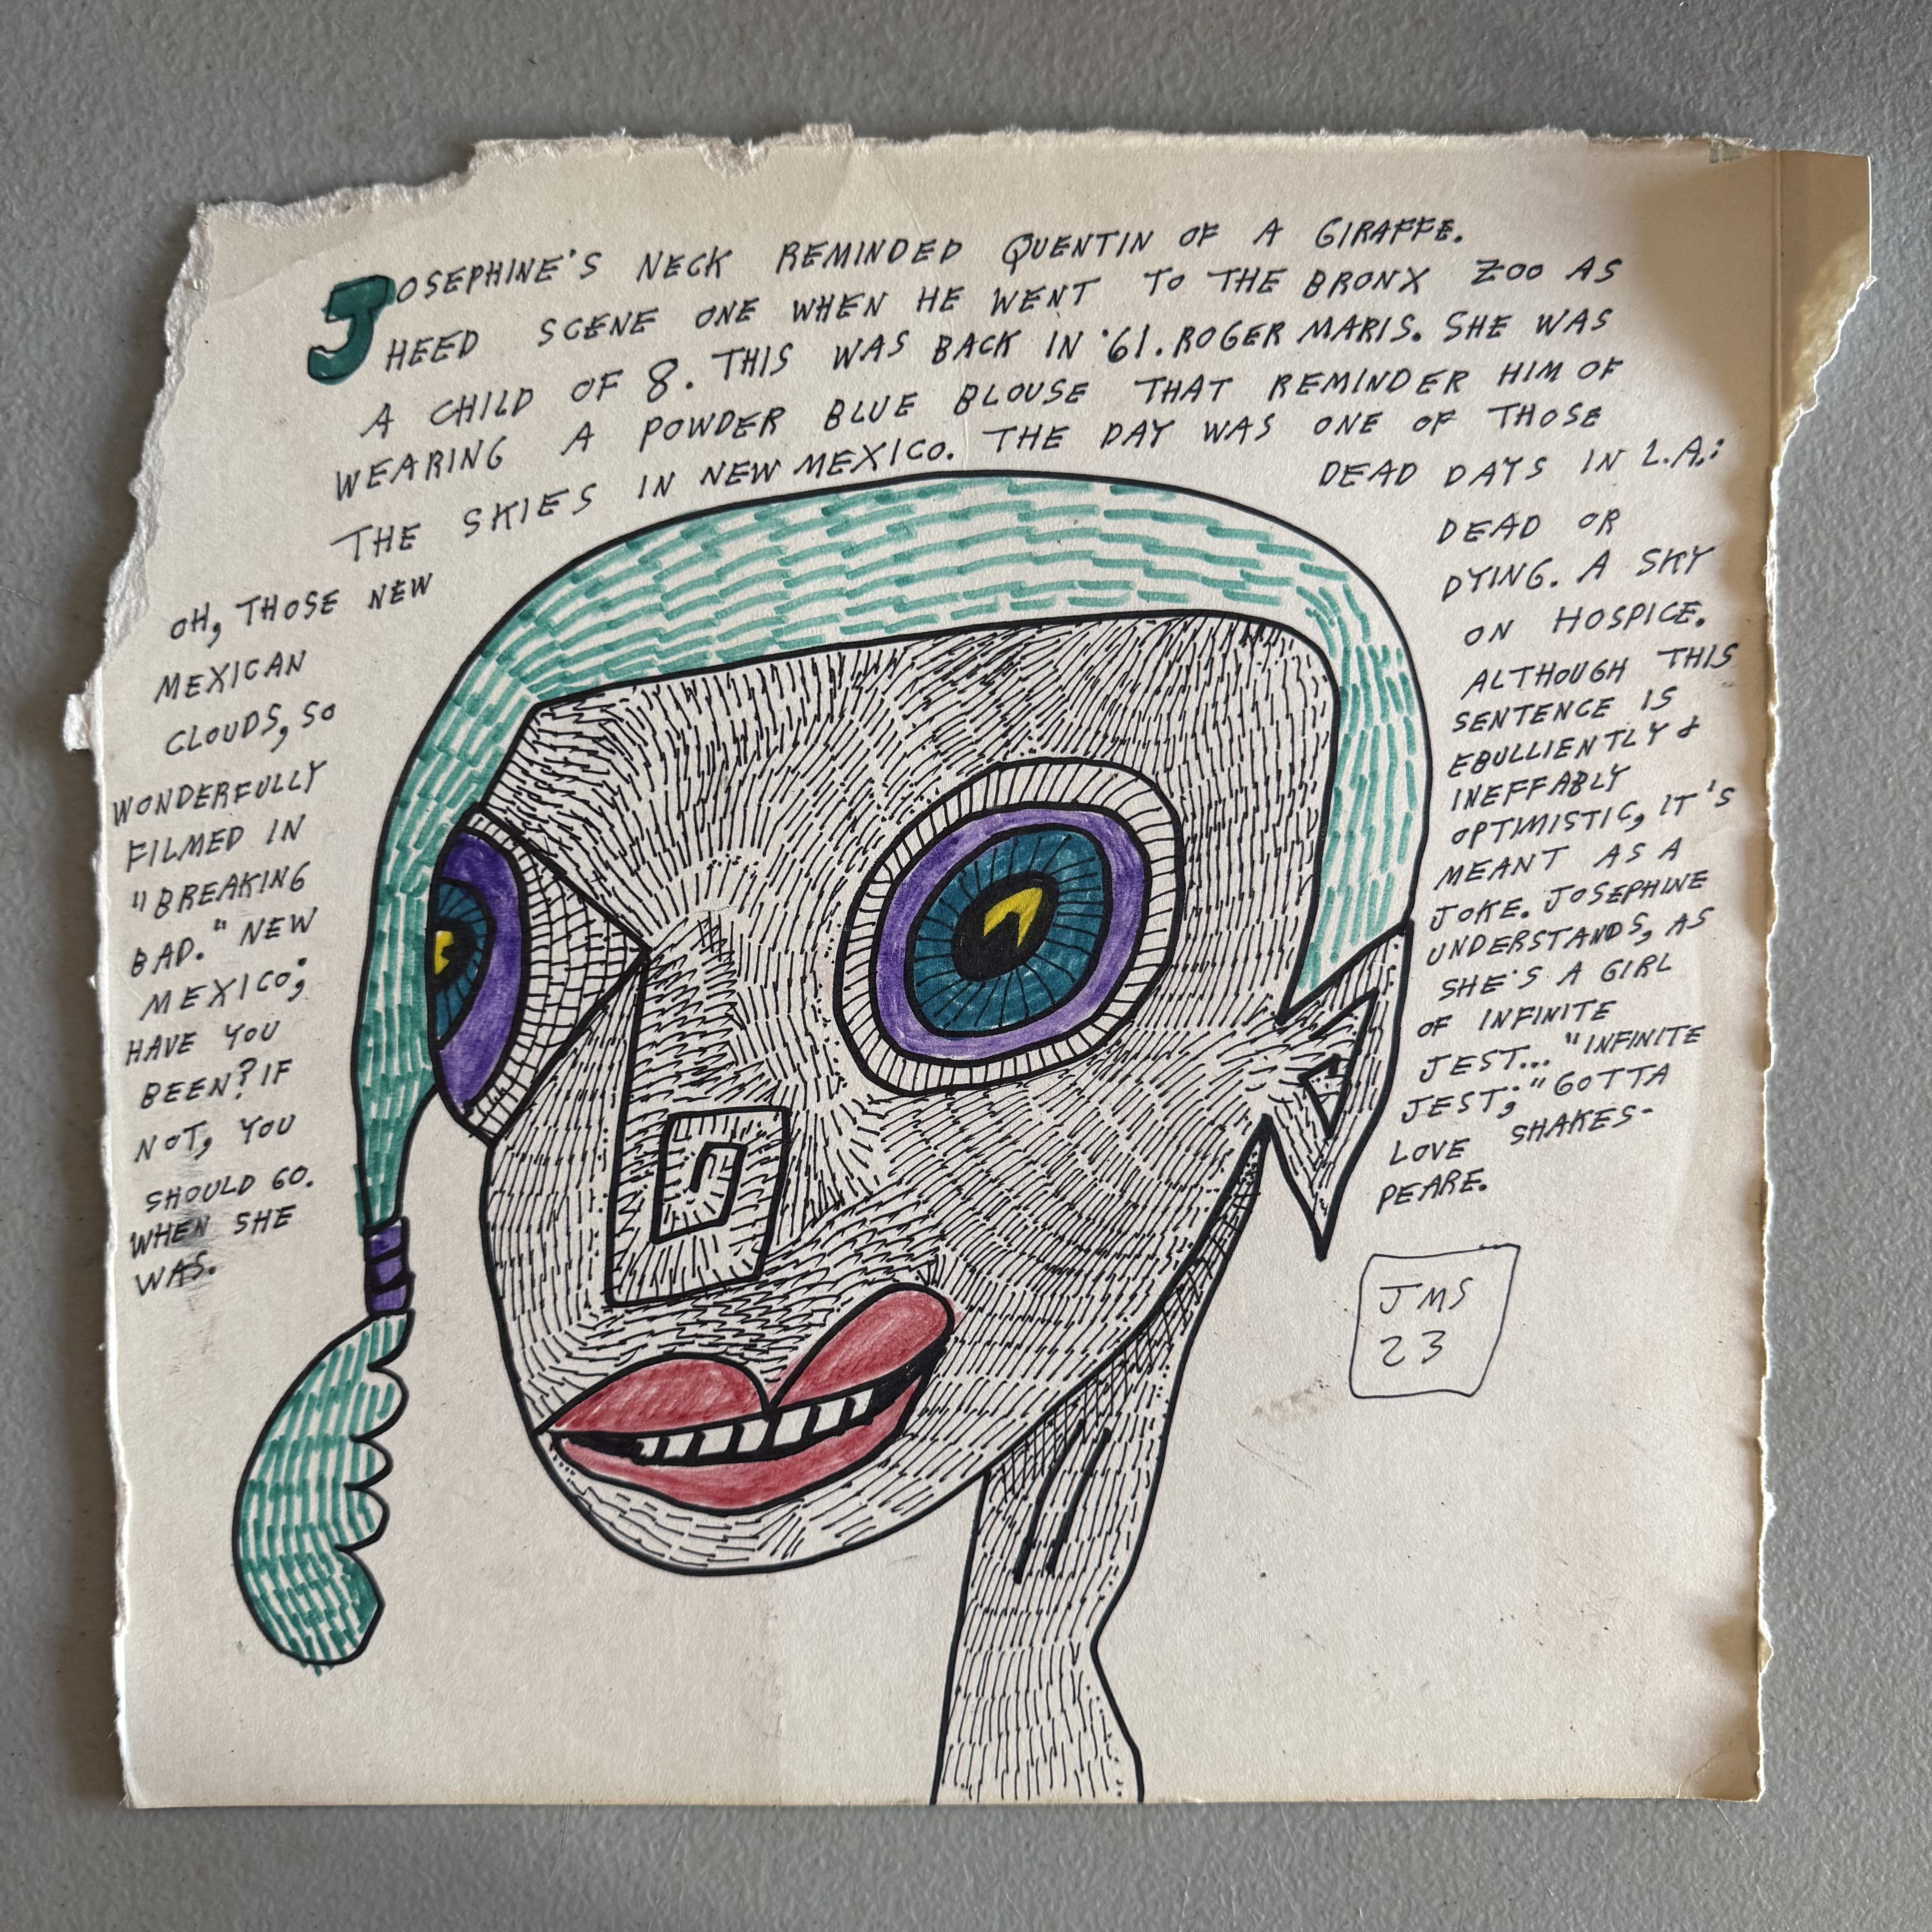 JOSEPHINE'S NECK REMINDED QUENTIN OF A GIRAFFE.
HEED SCENE ONE WHEN HE WENT TO THE BRONX ZOO AS
A CHILD OF 8. THIS WAS BACK IN '61. ROGER MARIS. SHE WAS
WEARING A POWDER BLUE BLOUSE THAT REMINDER HIM OF
THE SKIES IN NEW MEXICO. THE DAY WAS ONE OF THOSE
DEAD DAYS IN L.A.:
DEAD OR
DYING. A SKY
ON HOSPICE.
ALTHOUGH THIS
SENTENCE IS
EBULLIENTLY &
INEFFABLY
OPTIMISTIC, IT'S
MEANT AS A
JOKE. JOSEPHINE
UNDERSTANDS, AS
SHE'S A GIRL
OF INFINITE
JEST... "INFINITE
JEST;" GOTTA
LOVE SHAKES-
PEARE.
OH, THOSE NEW
MEXICAN
CLOUDS, SO
WONDERFULLY
FILMED IN
"BREAKING
BAD." NEW
MEXICO;
HAVE YOU
BEEN? IF
NOT, YOU
SHOULD GO.
WHEN SHE
WAS.
JMS
23